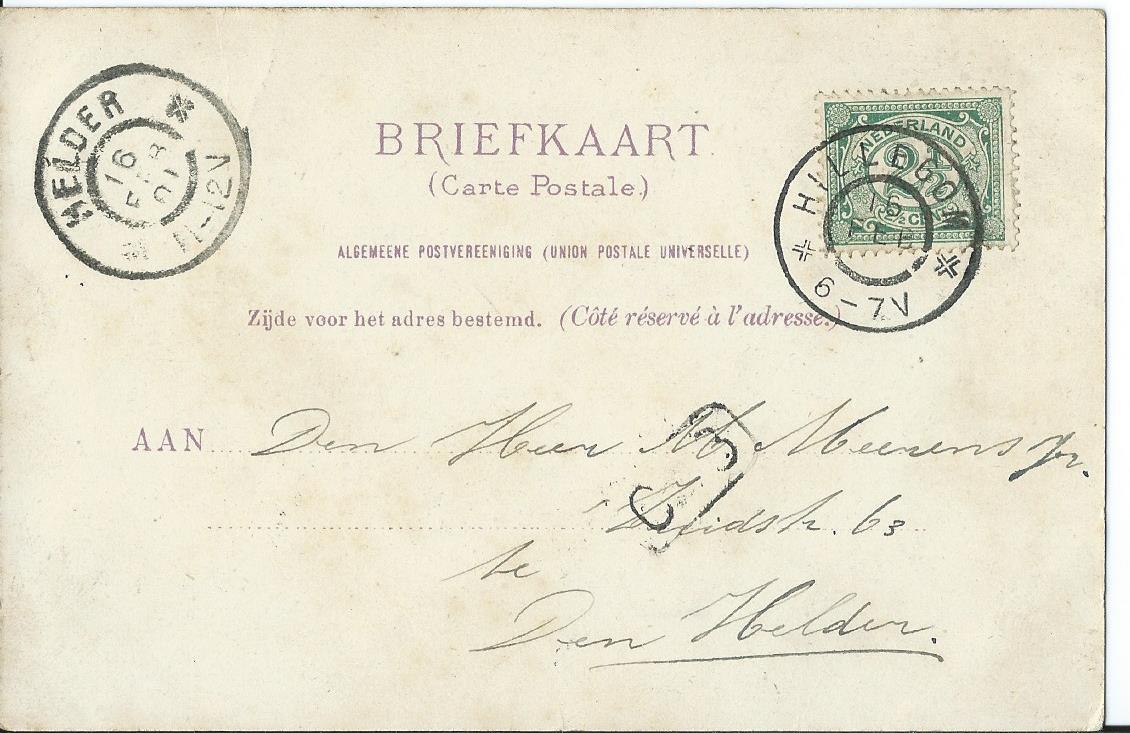 HELDER
16 FEB 01
11-12V
BRIEFKAART
(Carte Postale.)
NEDERLAND
2½
CENT
HILLEGOM
16 FEB
6-7V
ALGEMEENE POSTVEREENIGING (UNION POSTALE UNIVERSELLE)
Zijde voor het adres bestemd. (Côté réservé à l'adresse.)
AAN Den Heer M. Meerens jr.
Zuidstr. 63
te
Den Helder.